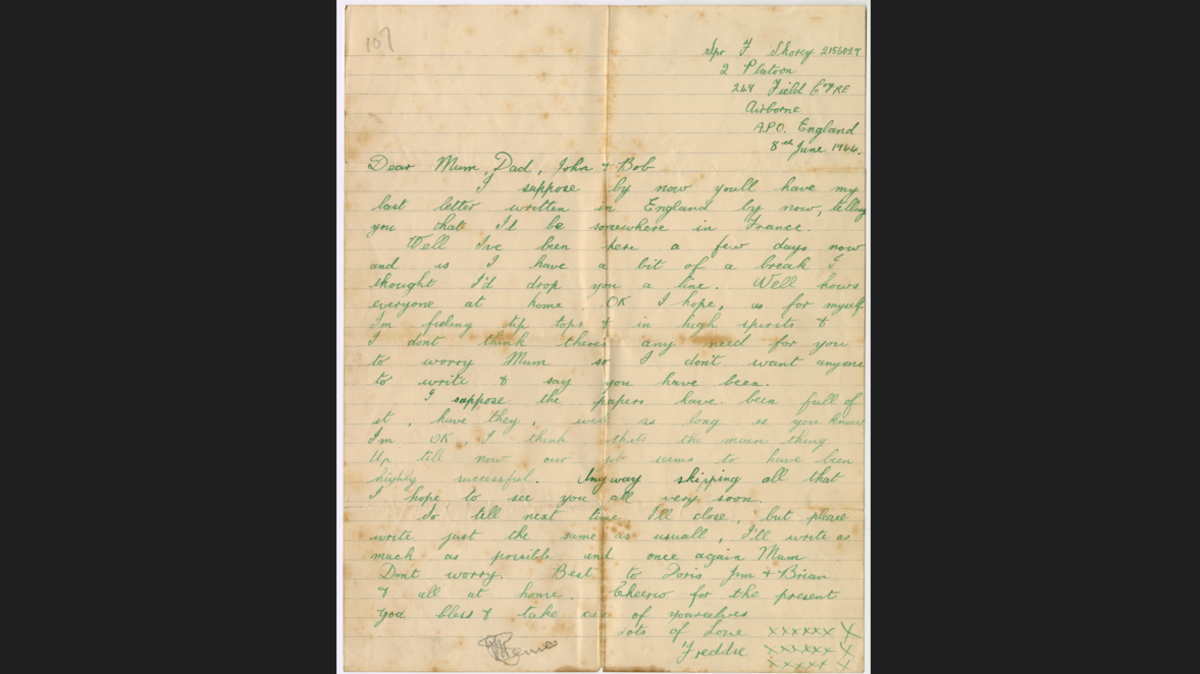 107
Spr F Shorey 2156027
2 Platoon
249 Field Coy RE
Airborne
A.P.O. England
8th June 1944.
Dear Mum, Dad, John + Bob
I suppose by now youll have my
last letter written in England by now, telling
you that Ill be somewhere in France.
Well Ive been here a few days now
and as I have a bit of a break I
thought I'd drop you a line. Well hows
everyone at home OK I hope, as for myself
Im feeling tip tops + in high spirits +
I dont think theres any need for you
to worry Mum so I don't want anyone
to write & say you have been.
I suppose the papers have been full of
it, have they, well as long as you know
Im OK, I think thats the main thing
Up till now our job seems to have been
highly successful. Anyway skipping all that
I hope to see you all very soon.
So till next time I'll close, but please
write just the same as usuall, I'll write as
much as possible and once again Mum
Dont worry. Best to Doris Jim + Brian
& all at home. Cheerio for the present
God bless & take care of yourselves
Lots of Love xxxxxx X
Freddie xxxxxx X
xxxxx X